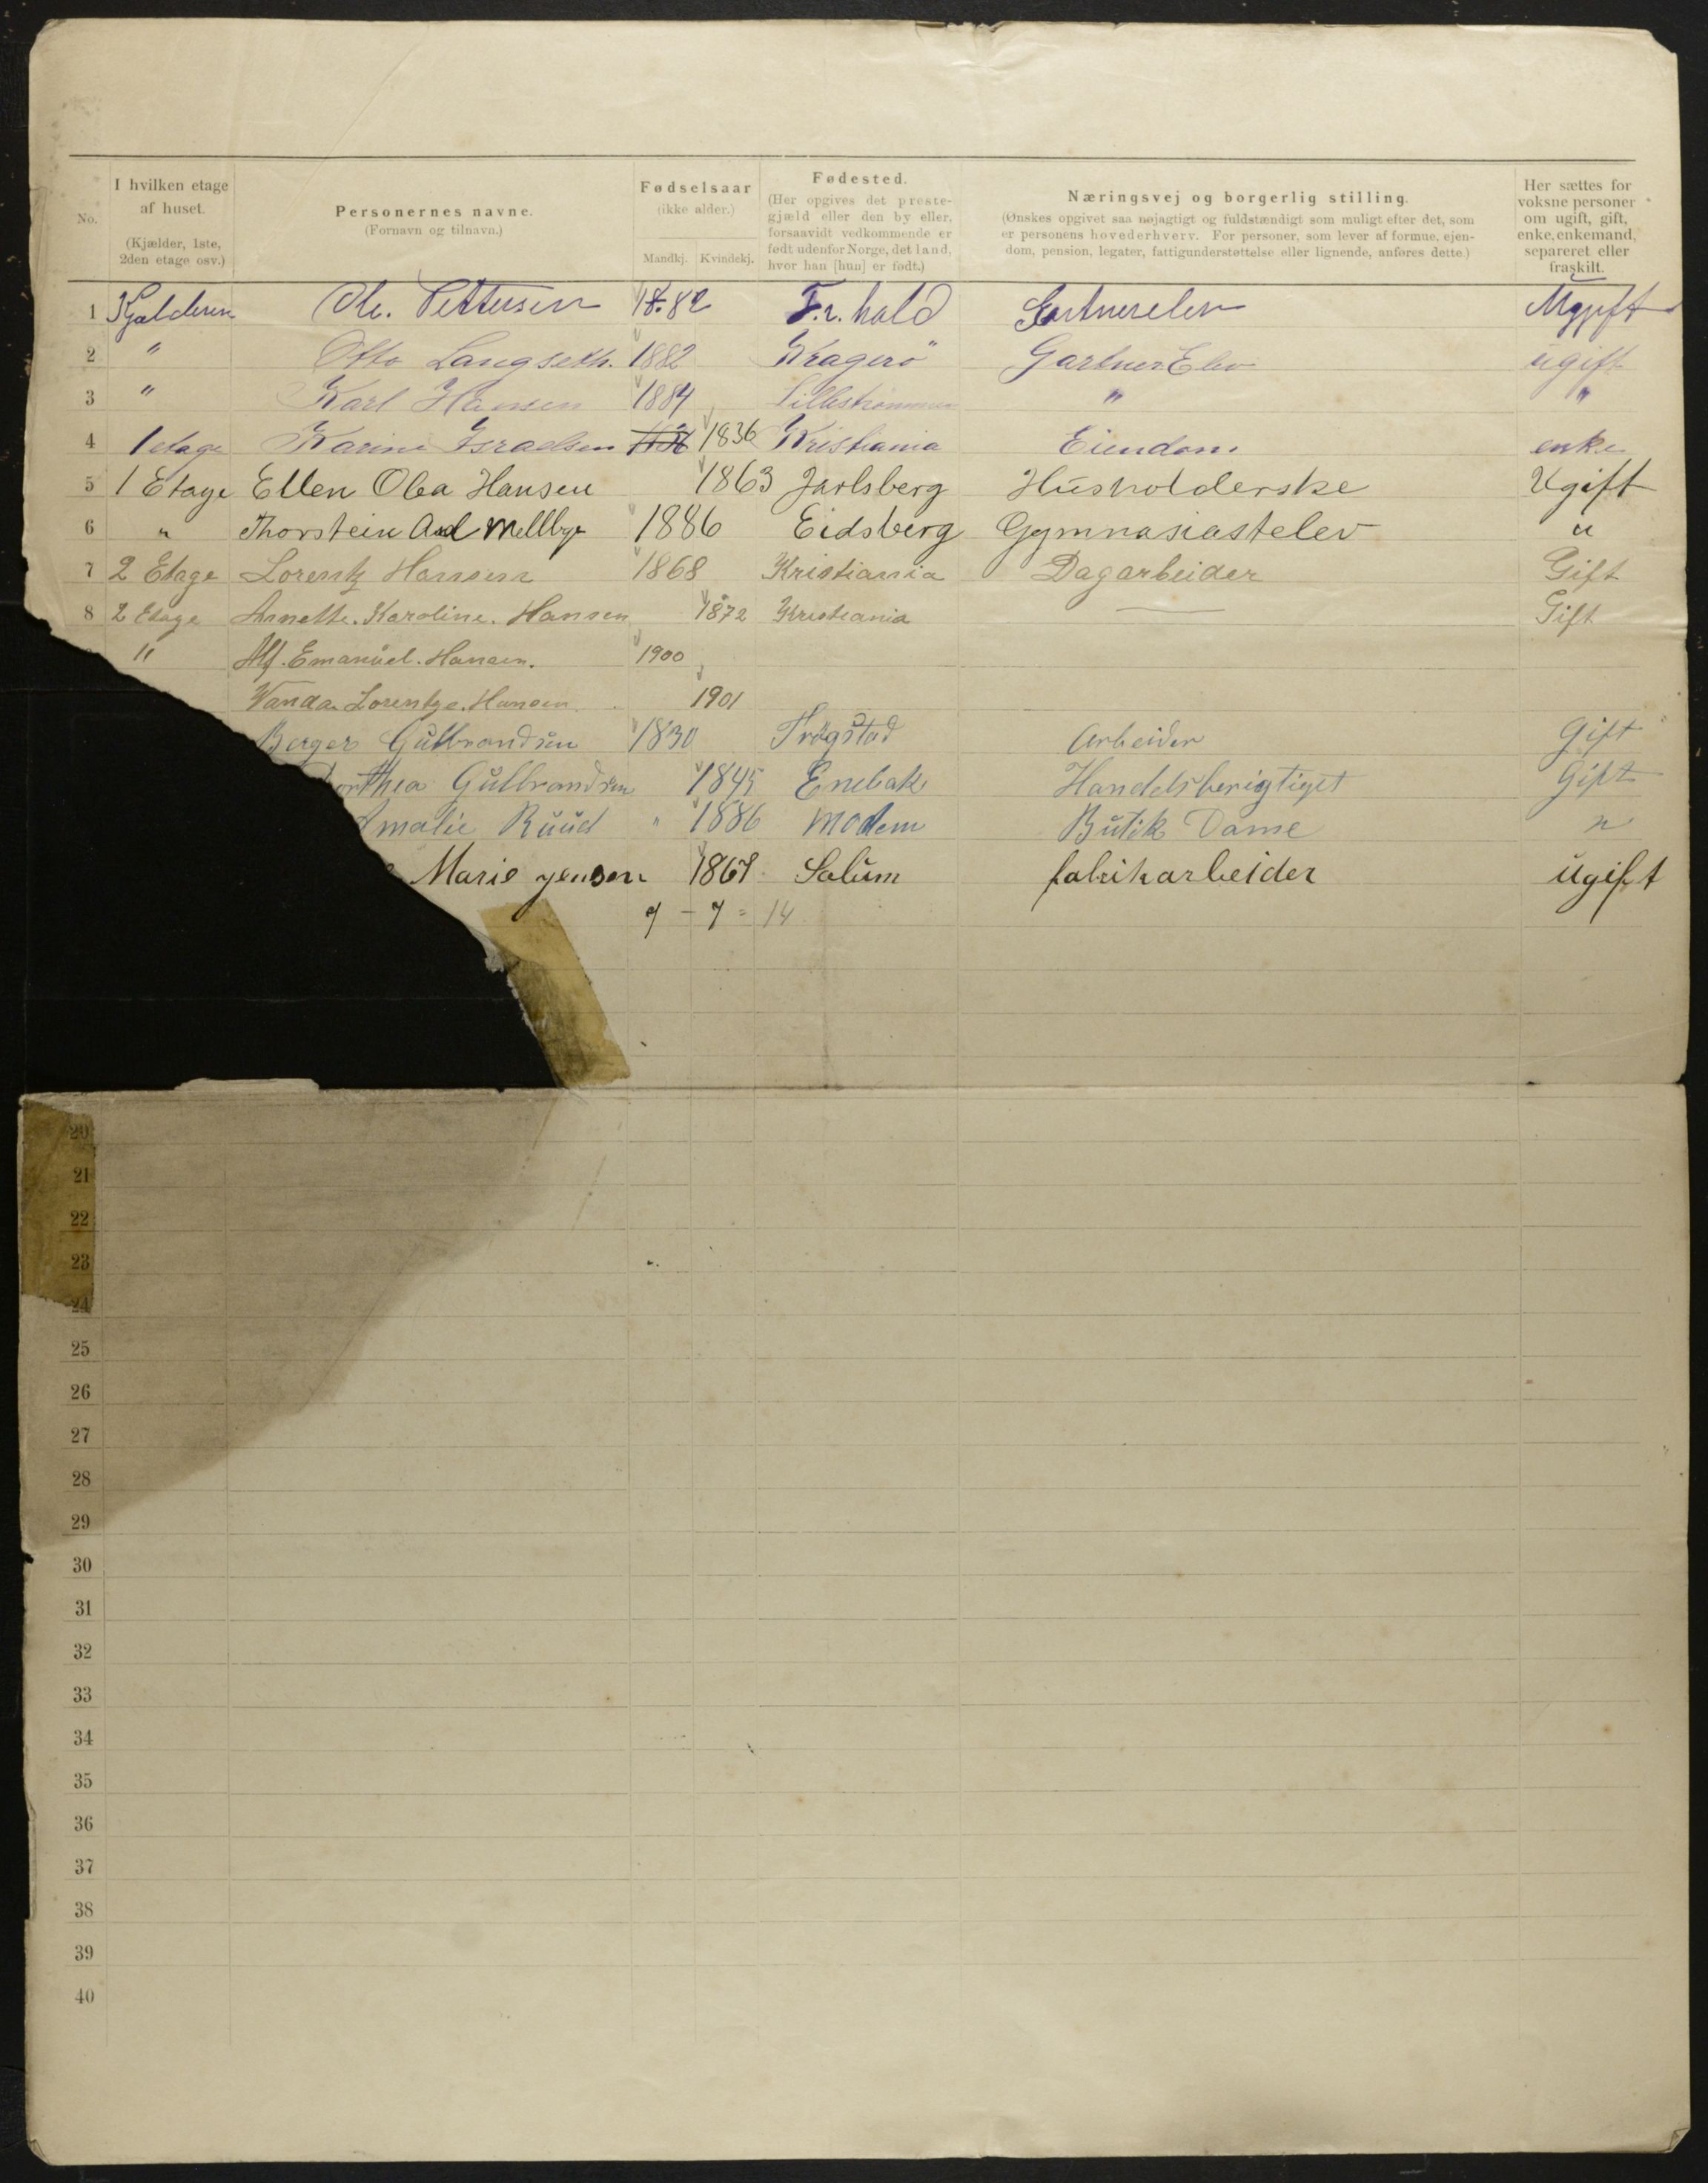 No. I hvilken etage af huset. (Kjælder, 1ste, 2den etage osv.) Personernes navne. (Fornavn og tilnavn.) Fødselsaar (ikke alder.) Mandkj. Kvindekj. Fødested. (Her opgives det prestegjæld eller den by eller, forsaavidt vedkommende er født udenfor Norge, det land, hvor han [hun] er født.) Næringsvej og borgerlig stilling. (Ønskes opgivet saa nøjagtigt og fuldstændigt som muligt efter det, som er personens hovederhverv. For personer, som lever af formue, ejendom, pension, legater, fattigunderstøttelse eller lignende, anføres dette.) Her sættes for voksne personer om ugift, gift, enke, enkemand, separeret eller fraskilt.
1 Kjælderen Ole. Pettersen 1882 Fr. hald Gartnerelev Ugift
2 " Otto Langseth. 1882 Kragerö Gartner Elev ugift
3 " Karl Hansen 1884 Lillestrømmen " "
4 1 etage Karine Israelsen 1836 Kristiania Eiendom enke
5 1 Etage Ellen Olea Hansen 1863 Jarlsberg Husholderske Ugift
6 " Thorstein Mellbye 1886 Eidsberg Gymnasiastelev "
7 2 Etage Lorentz Hansen 1868 Kristiania Dagarbeider Gift
8 2 Etage Annette. Karoline. Hansen 1872 Kristiania — Gift
" Alf. Emanuel. Hansen. 1900
Wanda Lorentze. Hansen. 1901
Berger Gulbrandsen 1830 Trøgstad Arbeider Gift
orthea Gulbrandsen 1845 Enebak Handelsberigtiget Gift
Amalie Ruud " 1886 Modem Butik Dame "
Marie Jensen 1867 Solum fabrikarbeider ugift
7 - 7 = 14
20
21
22
23
24
25
26
27
28
29
30
31
32
33
34
35
36
37
38
39
40